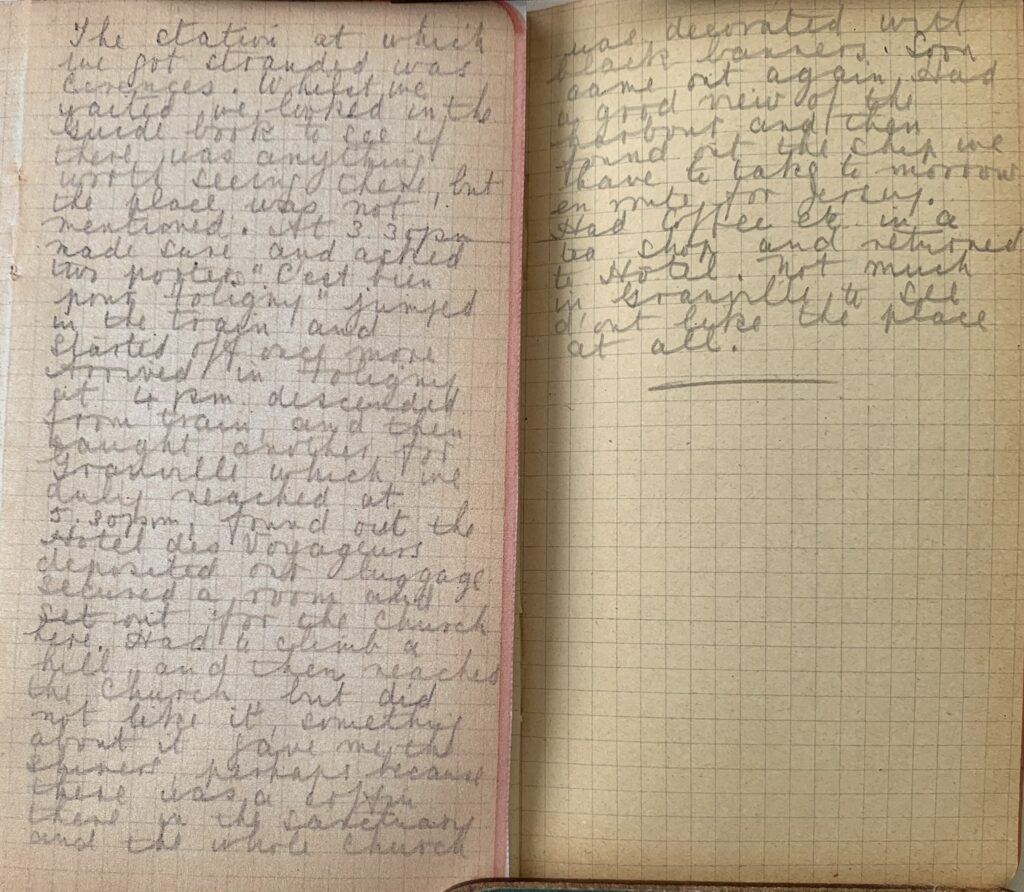 The station at which
we got stranded was
Cerences. Whilst we
waited we looked in the
Guide book to see if
there was anything
worth seeing there, but
the place was not
mentioned. At 3.30pm
made sure and asked
two porters "C'est bien
pour Foligny" jumped
in the train and
started off once more
Arrived in Foligny
at 4 pm descended
from train and then
caught another for
Granville which we
duly reached at
5.30pm, found out the
Hotel des Voyageurs
deposited our luggage
secured a room and
set out for the Church
here. Had to climb a
hill and then reached
the Church but did
not like it, something
about it gave me the
shivers perhaps because
there was a coffin
there in the sanctuary
and the whole church
was decorated with
black banners. Soon
came out again. Had
a good view of the
harbour and then
found out the ship we
have to take to morrow
en route for Jersey.
Had Coffee etc in a
tea shop and returned
to Hotel. Not much
in Granville to see
d'ont like the place
at all.